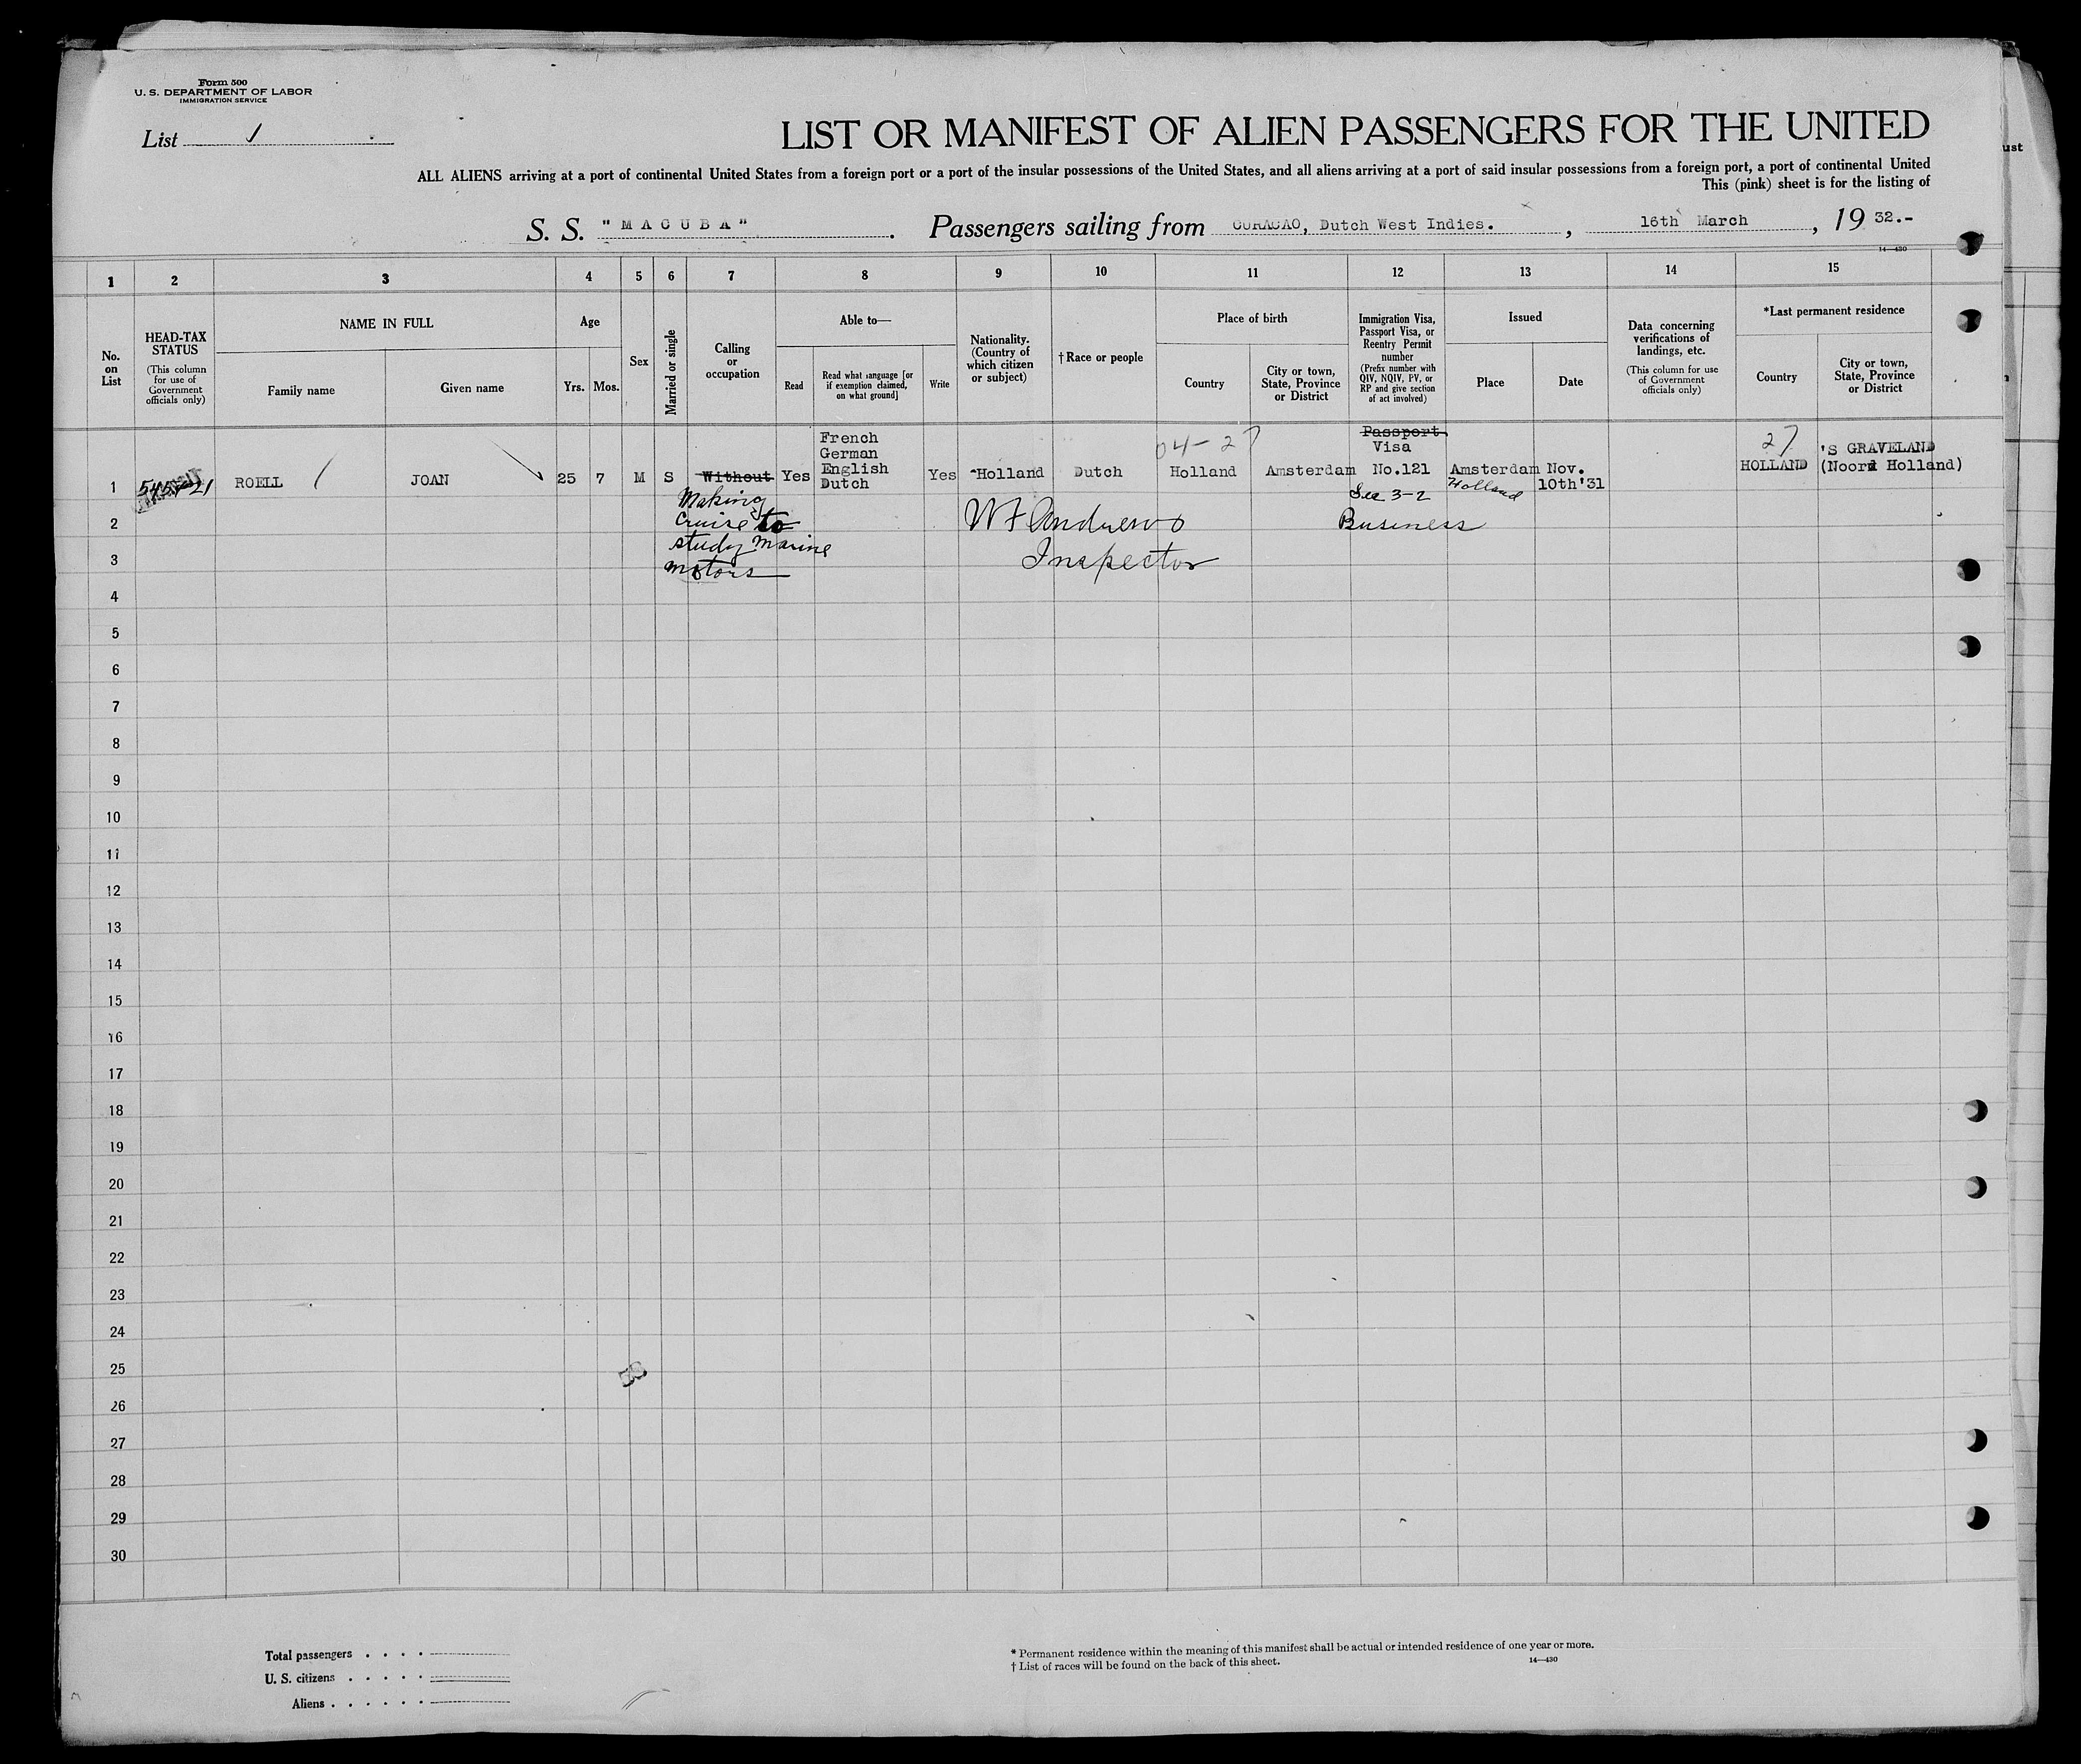 Form 500
U. S. DEPARTMENT OF LABOR
IMMIGRATION SERVICE
List 1
LIST OR MANIFEST OF ALIEN PASSENGERS FOR THE UNITED
ALL ALIENS arriving at a port of continental United States from a foreign port or a port of the insular possessions of the United States, and all aliens arriving at a port of said insular possessions from a foreign port, a port of continental United
This (pink) sheet is for the listing of
S. S. "MACUBA". Passengers sailing from CURACAO, Dutch West Indies., 16th March, 19 32.-
14—430
ust
1 2 3 4 5 6 7 8 9 10 11 12 13 14 15
No. on List
HEAD-TAX STATUS
(This column for use of Government officials only)
NAME IN FULL
Family name
Given name
Age
Yrs. Mos.
Sex
Married or single
Calling or occupation
Able to—
Read
Read what language [or if exemption claimed, on what ground]
Write
Nationality. (Country of which citizen or subject)
†Race or people
Place of birth
Country
City or town, State, Province or District
Immigration Visa, Passport Visa, or Reentry Permit number
(Prefix number with QIV, NQIV, PV, or RP and give section of act involved)
Issued
Place
Date
Data concerning verifications of landings, etc.
(This column for use of Government officials only)
*Last permanent residence
Country
City or town, State, Province or District
French
German
English
Dutch
04-27
Passport
Visa
27
'S GRAVELAND
1 ROELL JOAN 25 7 M S Without Yes Yes Holland Dutch Holland Amsterdam No.121 Amsterdam Nov. HOLLAND (Noord Holland)
Holland 10th'31
Sec 3-2
Making
cruise to
study marine
motors
W F Andrews
Inspector
Business
2
3
4
5
6
7
8
9
10
11
12
13
14
15
16
17
18
19
20
21
22
23
24
25
58
26
27
28
29
30
Total passengers . . . .
U. S. citizens . . . . .
Aliens . . . . . .
* Permanent residence within the meaning of this manifest shall be actual or intended residence of one year or more.
† List of races will be found on the back of this sheet.
14—430